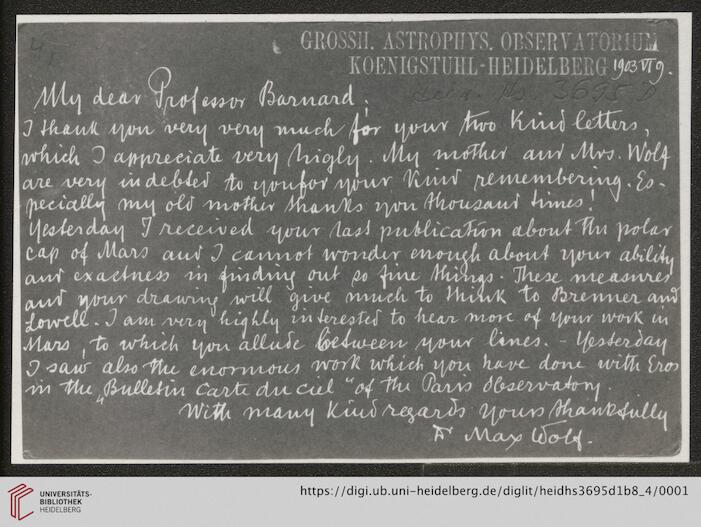 GROSSH. ASTROPHYS. OBSERVATORIUM
KOENIGSTUHL-HEIDELBERG 1903 VI 9.
Heid. Hs. 3695 D
My dear Professor Barnard!
I thank you very very much for your two kind letters,
which I appreciate very higly. My mother and Mrs. Wolf
are very indebted to you for your kind remembering. Es-
pecially my old mother thanks you thousand times!
Yesterday I received your last publication about the polar
cap of Mars and I cannot wonder enough about your ability
and exactness in finding out so fine things. These measures
and your drawing will give much to think to Brenner and
Lowell. I am very highly interested to hear more of your work in
Mars, to which you allude between your lines. – Yesterday
I saw also the enormous work which you have done with Eros
in the „Bulletin Carte du ciel“ of the Paris Observatory.
With many kind regards yours thankfully
Dr Max Wolf.
UNIVERSITÄTS-
BIBLIOTHEK
HEIDELBERG
https://digi.ub.uni-heidelberg.de/diglit/heidhs3695d1b8_4/0001